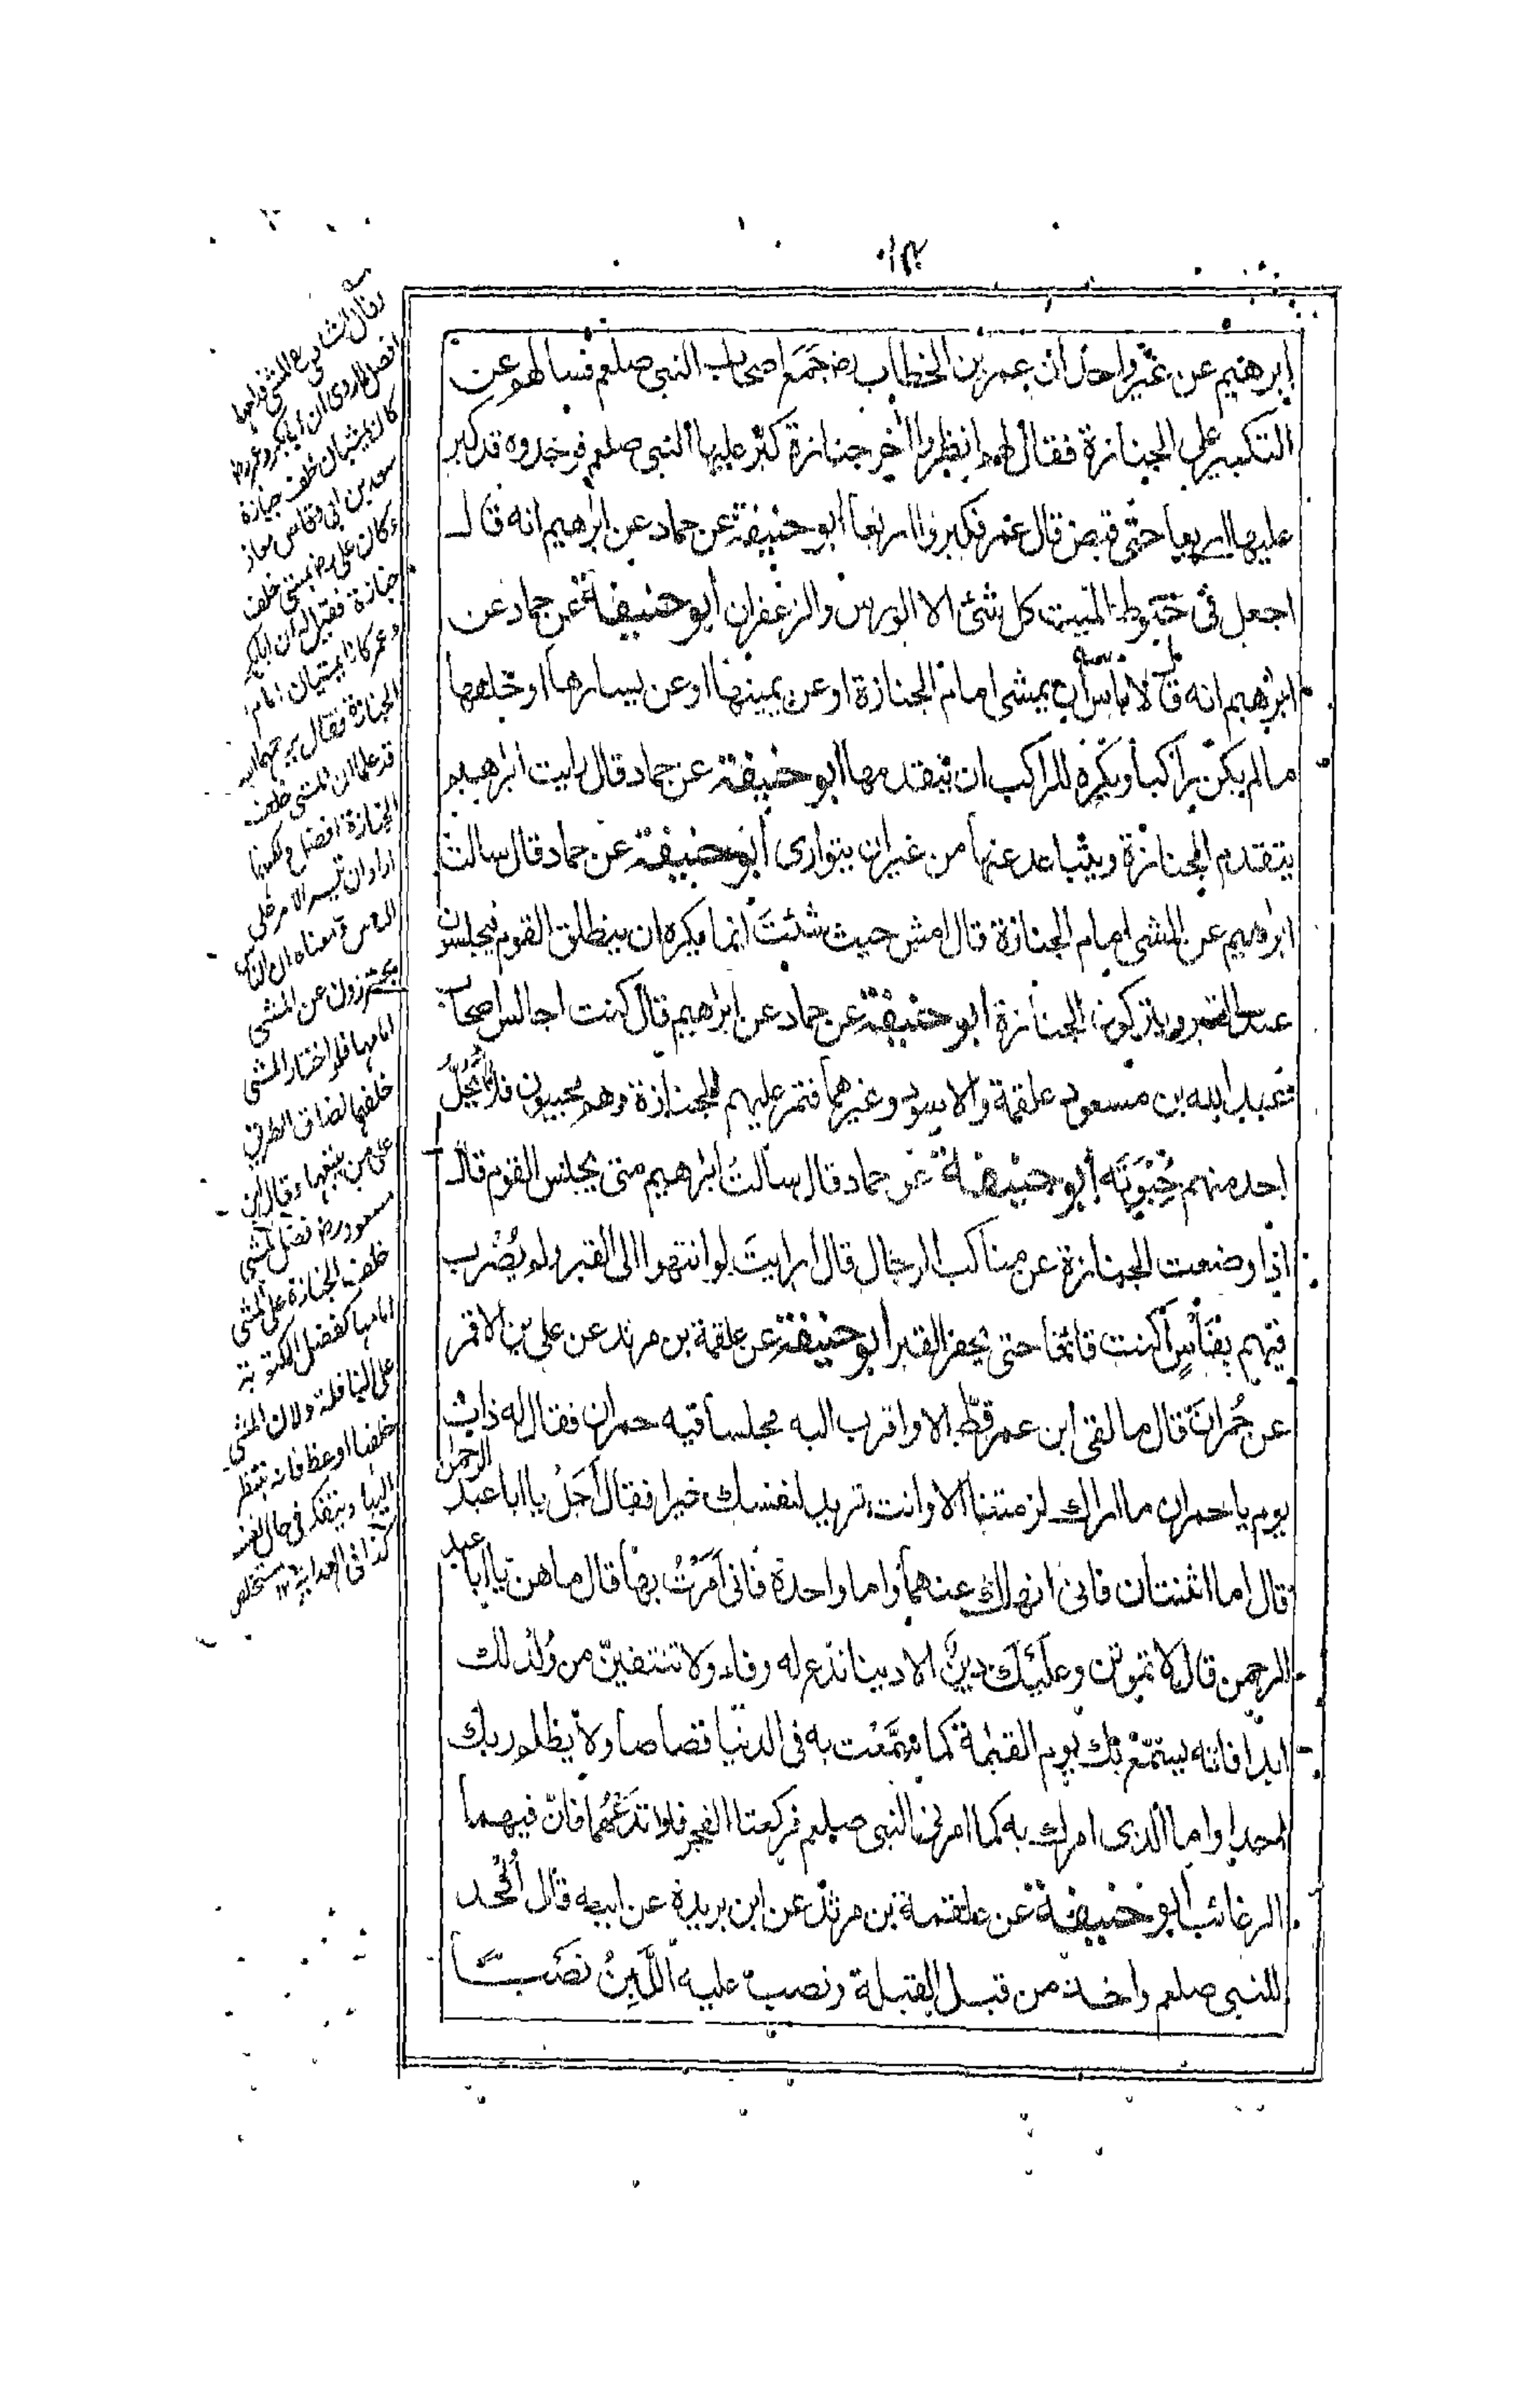 ابرهيم عن غير واحد ان عمر بن الخطاب رض جمع اصحاب النبي صلعم فسالهم عن
التكبير على الجنازة فقال لهم انظروا آخر جنازة كبر عليها النبي صلعم فوجدوه قد كبر
عليها اربعا حتى قبض قال عمر فكبروا اربعا ابو حنيفة عن حماد عن ابرهيم انه قال
اجعل فى حنوط الميت كل شئ الا الورس والزعفران ابو حنيفة عن حماد عن
ابرهيم انه قال لا باس ان يمشى امام الجنازة او عن يمينها او عن يسارها او خلفها
مالم يكن راكبا ويكره للراكب ان يتقدمها ابو حنيفة عن حماد قال رايت ابرهيم
يتقدم الجنازة ويتباعد عنها من غير ان يتوارى ابو حنيفة عن حماد قال سالت
ابرهيم عن المشى امام الجنازة قال امش حيث شئت انما يكره ان ينطلق القوم فيجلسون
عند القبر ويتركون الجنازة ابو حنيفة عن حماد عن ابراهيم قال كنت اجالس اصحاب
عبد الله بن مسعود علقمة والاسود وغيرهما فتمر عليهم الجنازة وهم محتبون فلا يحل
احد منهم حبوته ابو حنيفة عن حماد قال سالت ابرهيم متى يجلس القوم قال
اذا وضعت الجنازة عن مناكب الرجال قال ارايت لو انتهوا الى القبر ولم يضرب
فيهم بفاس اكنت قائما حتى يحفر القبر ابو حنيفة عن علقمة بن مرثد عن علي بن الاقمر
عن حمران قال ما لقى ابن عمر قط الا واقرب اليه مجلسا فيه حمران فقال له ذات
يوم يا حمران ما اراك لزمتنا الا وانت تريد لنفسك خيرا فقال اجل يا ابا عبد الرحمن
قال اما اثنتان فانى انهاك عنهما واما واحدة فانى امرت بها قال ما هن يا ابا عبد
الرحمن قال لا تموتن وعليك دين الا دينا تدع له وفاء ولا تنتفين من ولد لك
ابدا فانه يستمع بك يوم القيمة كما سمعت به فى الدنيا قصاصا ولا يظلم ربك
احدا واما الذى امرك به كما امرنى النبى صلعم فركعتا الفجر فلا تدعهما فان فيهما
الرغائب ابو حنيفة عن علقمة بن مرثد عن ابن بريدة عن ابيه قال الحد
للنبي صلعم واخذ من قبل القبلة ونصب عليه اللبن نصبا
وقال الشافعي المشى قدامها
افضل لما روى ان ابا بكر وعمر رض
كانا يمشيان خلف جنازة
سعد بن ابى وقاص معاذ
وكان على رض يمشى خلف
جنازة فقيل له ان ابا بكر
وعمر كانا يمشيان امام
الجنازة فقال يرحمهما الله
قد علما ان المشى خلف
الجنازة افضل ولكنهما
ارادا ان تيسر الامر على
الناس ومعناه ان الناس
يحترزون عن المشى
امامها فلو اختار المشى
خلفها لضاق الطريق
على من يتبعها وقال ابن
مسعود رض فضل المشى
خلف الجنازة على المشى
امامها كفضل المكتوبة
على النافلة ولان المشى
خلفها اوعظ فانه ينتظر
اليها ويتفكر فى حال نفسه
كذا فى الهداية ١٢ مستخلص